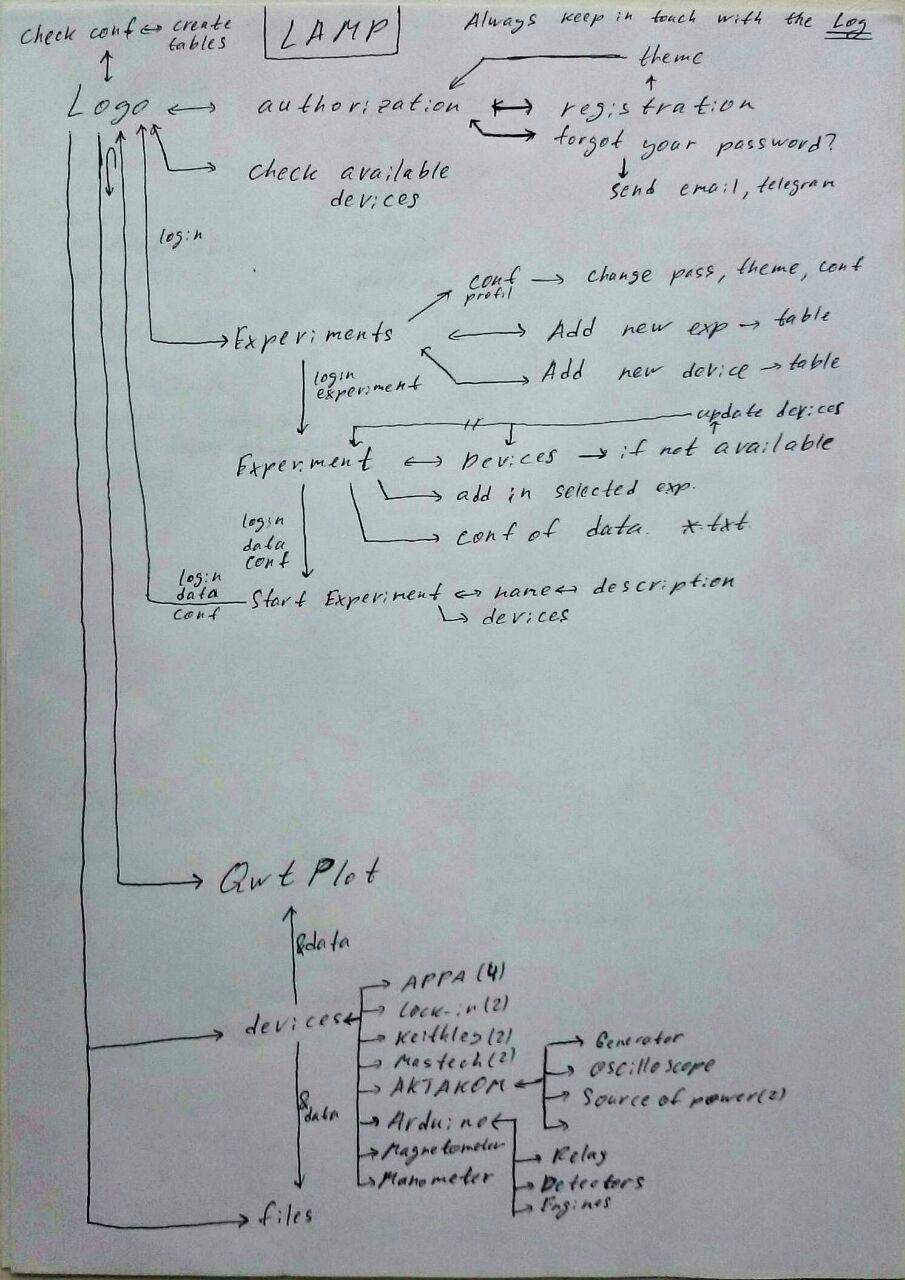 Check conf ↔ create tables
LAMP
Always keep in touch with the Log
theme
Logo ↔ authorization ↔ registration
forgot your password?
check available
devices
send email, telegram
login
conf
profil → change pass, theme, conf
Experiments ↔ Add new exp → table
login
experiment
Add new device → table
update devices
Experiment ↔ Devices → if not available
add in selected exp.
login
data
conf
conf of data. *.txt
login
data
conf
Start Experiment ↔ name ↔ description
devices
Qwt Plot
&data
devices
APPA (4)
Lock-in (2)
Keithley (2)
Mastech (2)
AKTAKOM
Generator
Oscilloscope
Source of power (2)
&data
Arduino
Magnetometer
Manometer
Relay
Detectors
Engines
files